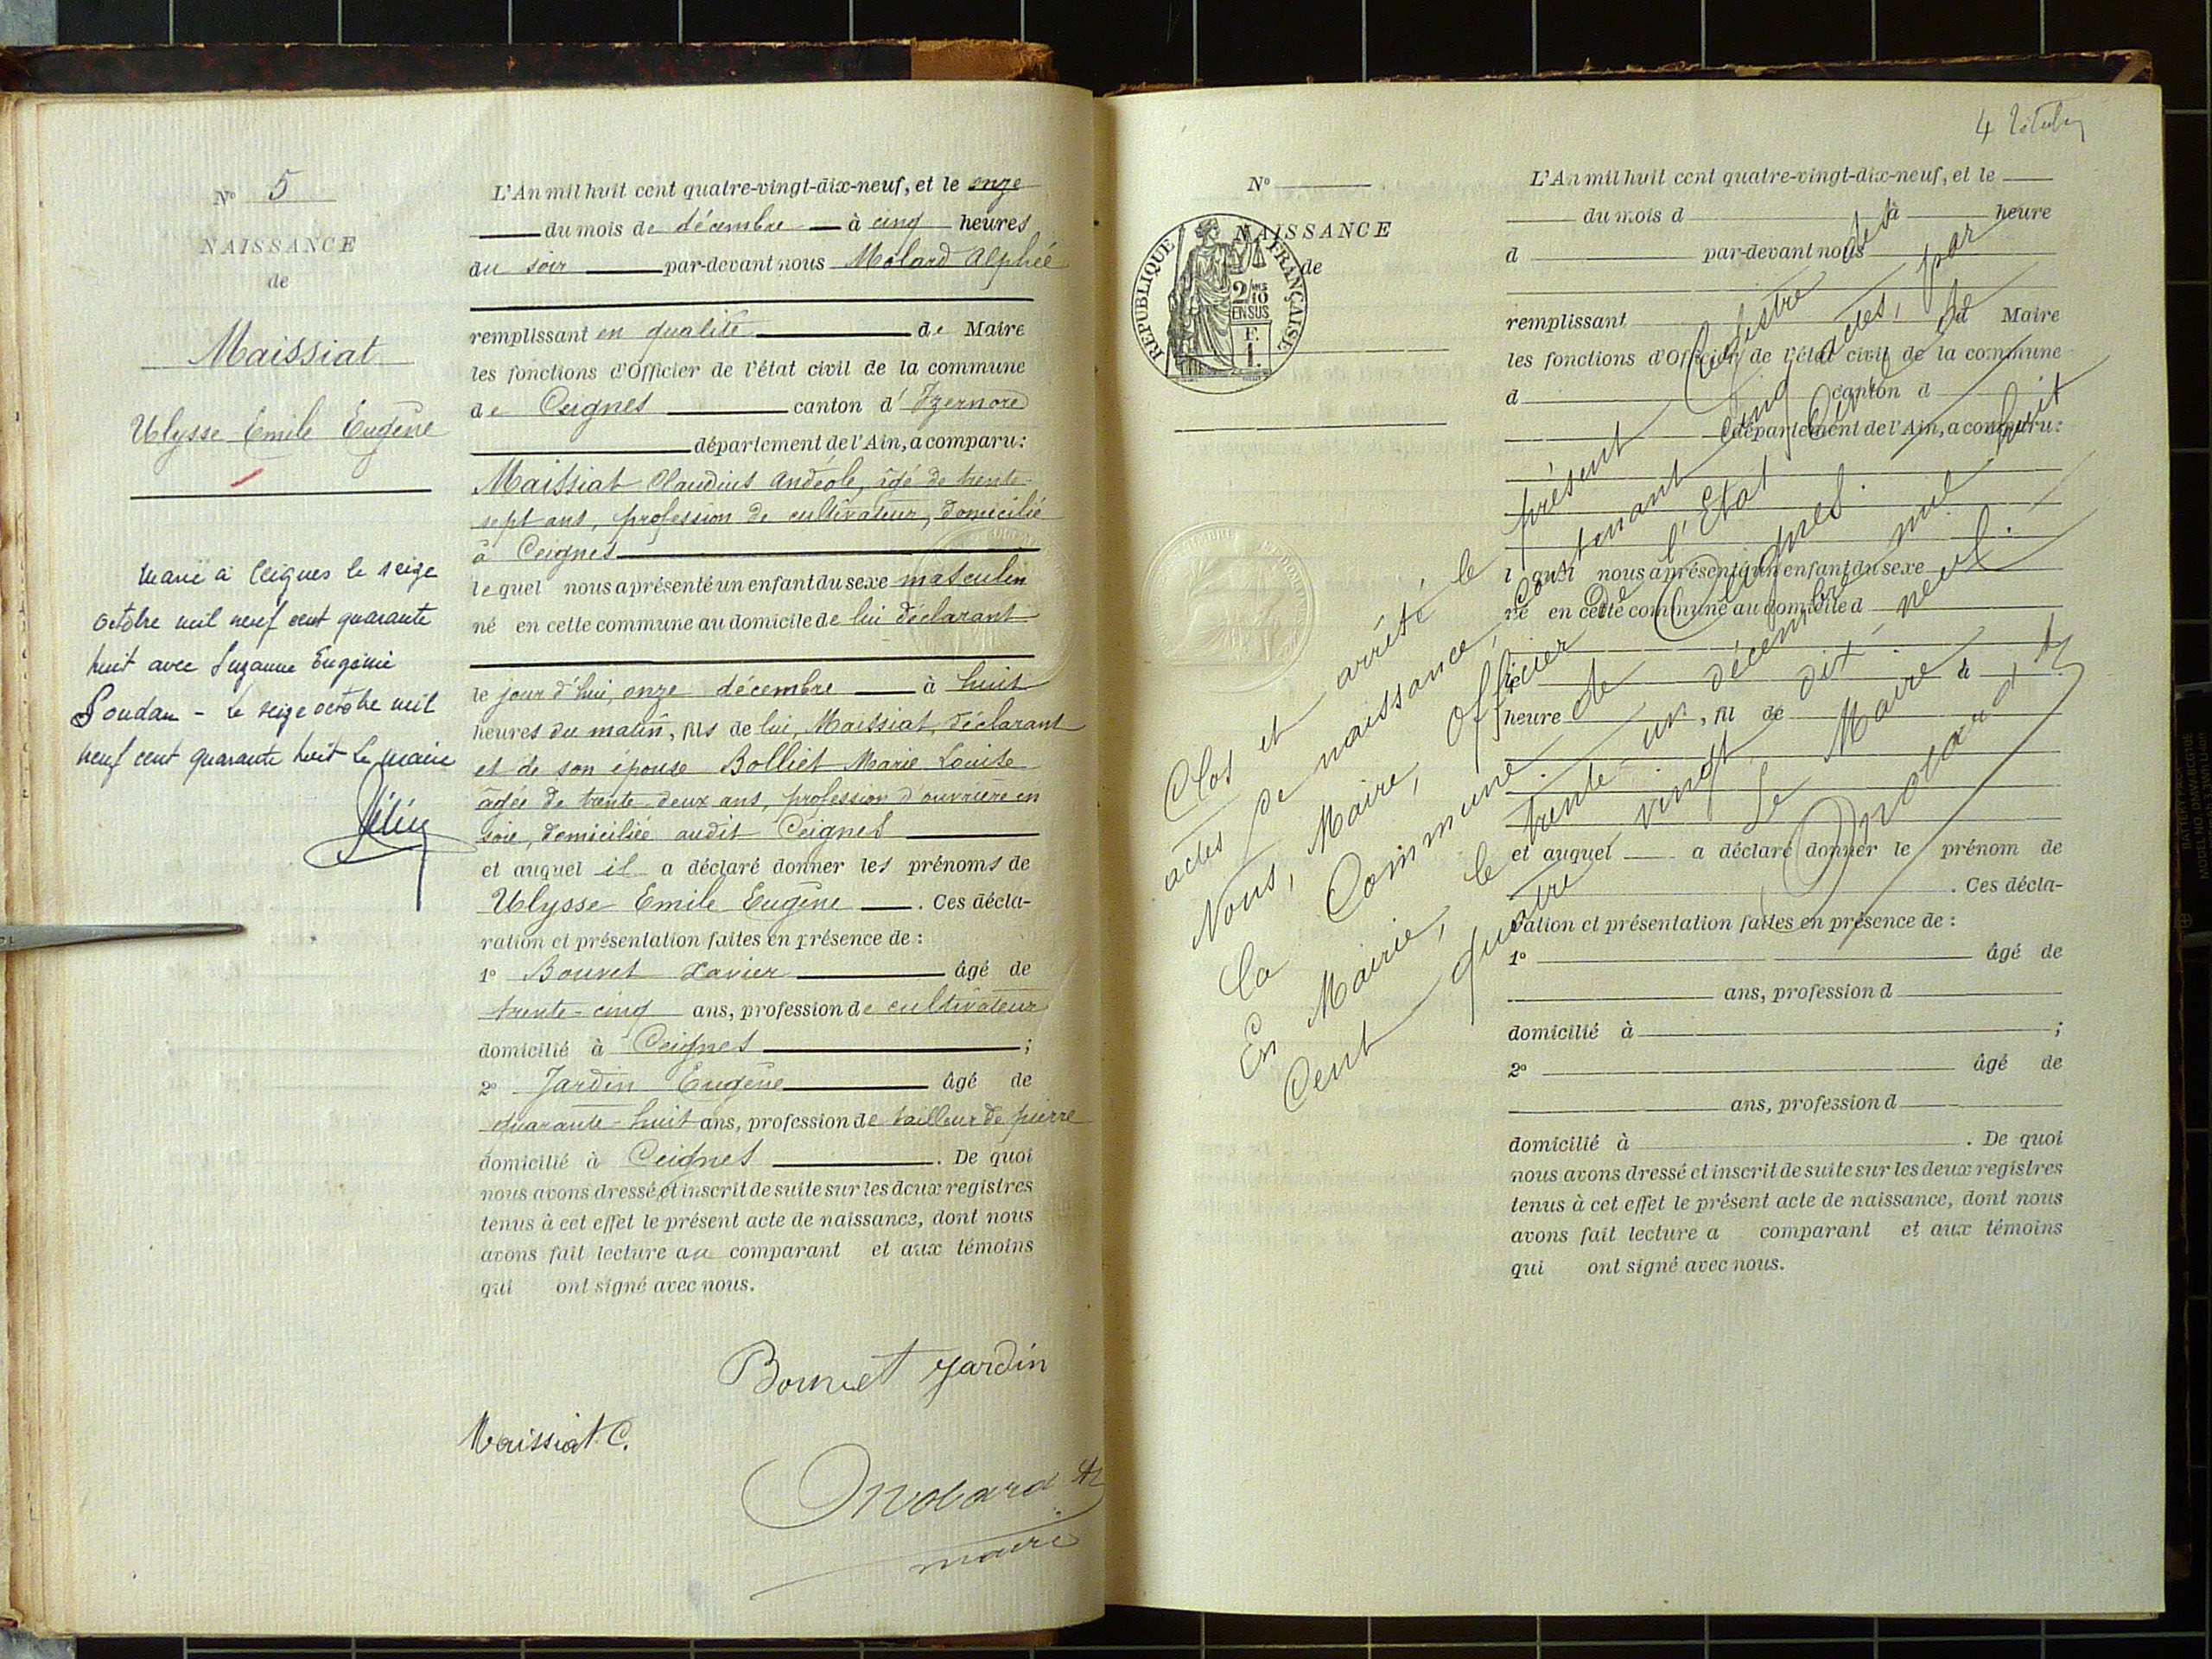 N° 5
NAISSANCE
de
Maissiat
Ulysse Emile Eugène
Marié à Ceignes le seize
octobre mil neuf cent quarante
huit avec Suzanne Eugénie
Soudan - Le seize octobre mil
neuf cent quarante huit Le maire
L'An mil huit cent quatre-vingt-dix-neuf, et le onze
du mois de décembre à cinq heures
du soir par-devant nous Molard Alphée
remplissant en qualité de Maire
les fonctions d'Officier de l'état civil de la commune
de Ceignes canton d'Izernore
département de l'Ain, a comparu:
Maissiat Claudius Andéole, âgé de trente-
sept ans, profession de cultivateur, domicilié
à Ceignes
lequel nous a présenté un enfant du sexe masculin
né en cette commune au domicile de lui déclarant
le jour d'hui, onze décembre à huit
heures du matin, fils de lui, Maissiat, déclarant
et de son épouse Bolliet Marie Louise
âgée de trente-deux ans, profession d'ouvrière en
soie, domiciliée audit Ceignes
et auquel il a déclaré donner les prénoms de
Ulysse Emile Eugène. Ces décla-
ration et présentation faites en présence de :
1° Bouvet Xavier âgé de
trente-cinq ans, profession de cultivateur
domicilié à Ceignes ;
2° Jardin Eugène âgé de
quarante-huit ans, profession de tailleur de pierre
domicilié à Ceignes. De quoi
nous avons dressé et inscrit de suite sur les deux registres
tenus à cet effet le présent acte de naissance, dont nous
avons fait lecture au comparant et aux témoins
qui ont signé avec nous.
Bouvet Jardin
Maissiat C.
Molard A
maire
4
N°
NAISSANCE
de
REPUBLIQUE FRANÇAISE
2/10
EN SUS
L'An mil huit cent quatre-vingt-dix-neuf, et le
du mois d à heure
d par-devant nous
remplissant de Maire
les fonctions d'Officier de l'état civil de la commune
d canton d
département de l'Ain, a comparu:
l quel nous a présenté un enfant du sexe
né en cette commune au domicile d
le à
heure d , fil de
et auquel a déclaré donner le prénom de
. Ces décla-
ration et présentation faites en présence de :
1° âgé de
ans, profession d
domicilié à ;
2° âgé de
ans, profession d
domicilié à . De quoi
nous avons dressé et inscrit de suite sur les deux registres
tenus à cet effet le présent acte de naissance, dont nous
avons fait lecture a comparant et aux témoins
qui ont signé avec nous.
Clos et arrêté le présent Registre des
actes de naissance, contenant cinq actes, par
Nous, Maire, Officier de l'Etat Civil de
la Commune de Ceignes.
En Mairie, le trente-un décembre mil huit
Cent quatre vingt dix neuf.
Le Maire
Molard A